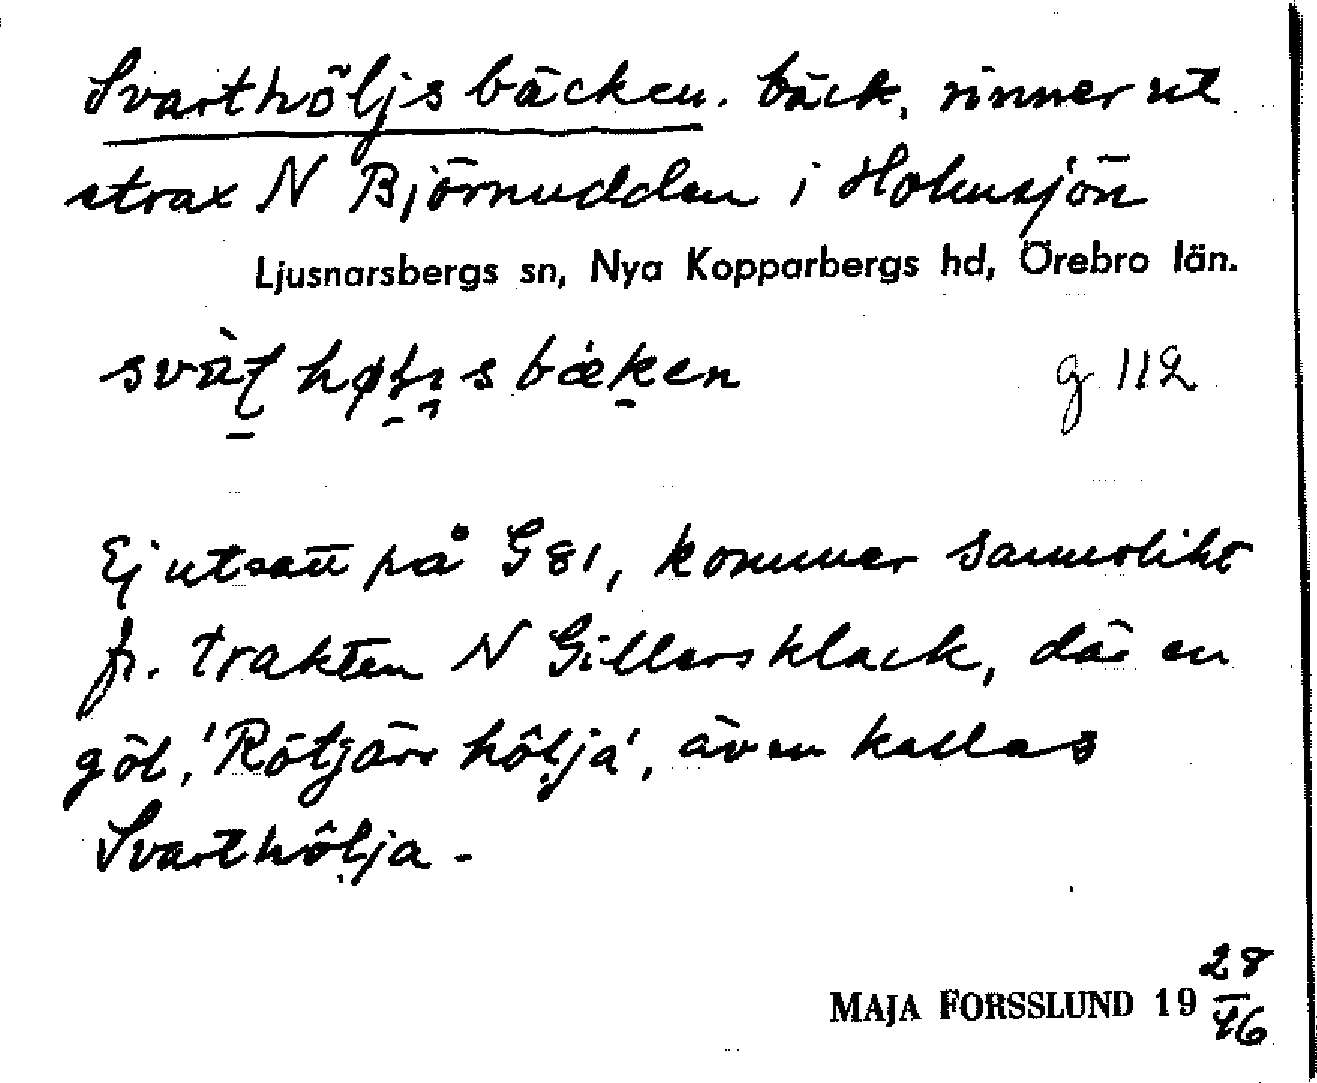 Svarthöljsbäcken. bäck, rinner ut
strax N Björnudden i Hokusjön
Ljusnarsbergs sn, Nya Kopparbergs hd, Örebro län.
g 112
Ej utsatt på G 81, kommer sannolikt
fr. trakten N Gillersklack, där en
göl, 'Rötjärn hölja', även kallas
Svarthölja -
MAJA FORSSLUND 19 28/46